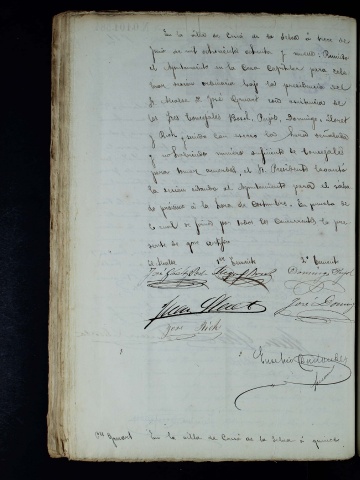 En la villa de Cassá de la Selva á trece de
Junio de mil ochocientos ochenta y nueve. Reunido
el Ayuntamiento en la Casa Capitular para cele-
brar sesion ordinaria bajo la presidencia del
Sr Alcalde D. José con asistencia de
los Sres Concejales Bosch, Pujol, Domingo, Lloret
y Rich, siendo las once la hora señalada
y no habiendo número suficiente de Concejales
para tomar acuerdos, el Sr. Presidente levantó
la sesion citando el Ayuntamiento para el sába-
do próximo á la hora de costumbre. En prueba de
lo cual se firma por todos los concurrentes la pre-
sente de que certifico
El Alcalde 1er Teniente 2º Teniente
José Bosch Domingo Pujol
Juan Lloret José Doming
José Rich
Eusebio
En la villa de Cassá de la Selva á quince